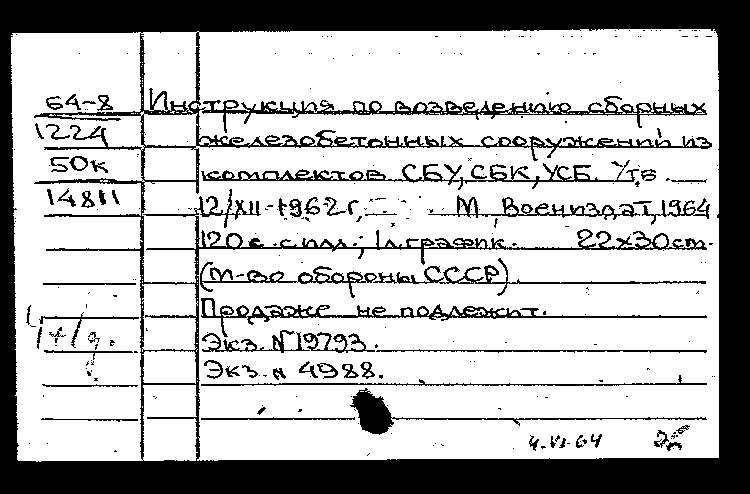 64-8 Инструкция по возведению сборных
1224 железобетонных сооружений из
50к комплектов СБУ, СБК, УСБ. Утв.
14811 12/XII-1962 г, М, Воениздат, 1964.
120 с. с илл.; 1 л. график. 22x30 cm.
(М-во обороны СССР).
Продаже не подлежит.
Экз. № 19793.
Экз. н 4988.
4.VI.64